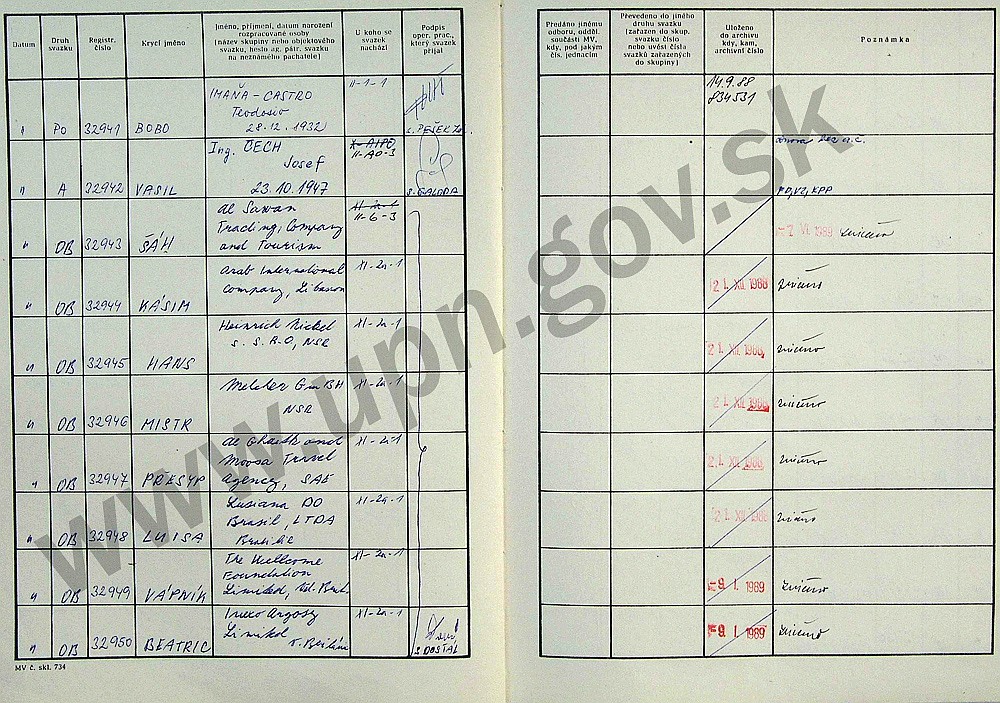 Datum
Druh svazku
Registr. číslo
Krycí jméno
Jméno, příjmení, datum narození rozpracované osoby (název skupiny nebo objektového svazku, heslo ag. pátr. svazku na neznámého pachatele)
U koho se svazek nachází
Podpis oper. prac., který svazek přijal
Předáno jinému odboru, odděl. součásti MV, kdy, pod jakým čís. jednacím
Převedeno do jiného druhu svazku (zařazen do skup. svazku číslo nebo uvést čísla svazků zařazených do skupiny)
Uloženo do archivu kdy, kam, archivní číslo
Poznámka
" PO 32941 BOBO
IMAÑA - CASTRO
Teodosio
28.12.1932
II-1-1
PEŠEK
14.9.88
834531
" A 32942 VASIL
Ing. ČECH
Josef
23.10.1947
II-AO-3
" OB 32943 ŠÁH
Al Sawan
Trading, Company
and Tourism
II-6-3
-7 VI 1989 zničeno
" OB 32944 KÁSIM
Arab International
Company, Libanon
XI-2a-1
21. XII. 1988 zničeno
" OB 32945 HANS
Heinrich Nickel
s.s.R.O, NSR
XI-2a-1
21. XII. 1988 zničeno
" OB 32946 MISTR
Melcher GmBH
NSR
XI-2a-1
21. XII. 1988 zničeno
" OB 32947 PŘESYP
Moosa Travel
Agency, SAE
XI-2a-1
21. XII. 1988 zničeno
" OB 32948 LUISA
Lusiana DO
Brasil, LTDA
Brazílie
XI-2a-1
21. XII. 1988 zničeno
" OB 32949 VÁPNÍK
The Wellcome
Foundation
Limited, Vel. Brit.
XI-2a-1
-9. I. 1989 zničeno
" OB 32950 BEATRIC
Argosy
Limited
XI-2a-1
DOSTÁL
-9. I. 1989 zničeno
MV č. skl. 734
www.upn.gov.sk